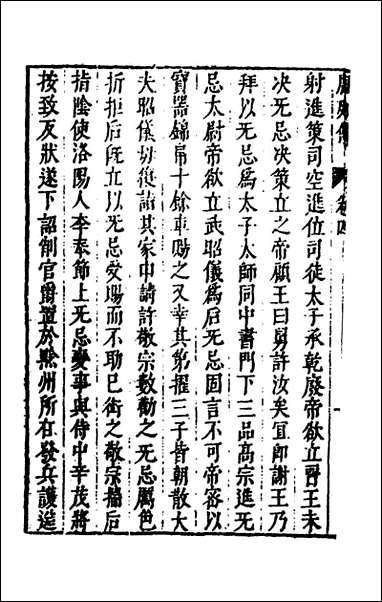 射進策司空進位司徒太子承乾廢帝欲立晉王未
决无忌决策立之帝顧王曰舅許汝矣宜卽謝王乃
拜以无忌爲太子太師同中書門下三品高宗進无
忌太尉帝欲立武昭儀爲后无忌固言不可帝密以
寶器錦帛十餘車賜之又幸其第擢三子皆朝散大
夫昭儀母復詣其家申請許敬宗數勸之无忌厲色
折拒后旣立以无忌受賜而不助已銜之敬宗揣后
指陰使洛陽人李奉節上无忌變事與侍中辛茂將
按致反狀遂下詔削官爵置於黔州所在發兵護送
卷四